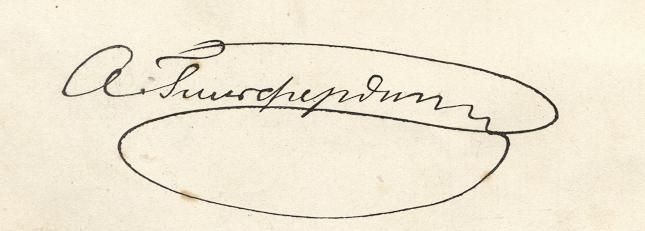 А. Гильфердинг